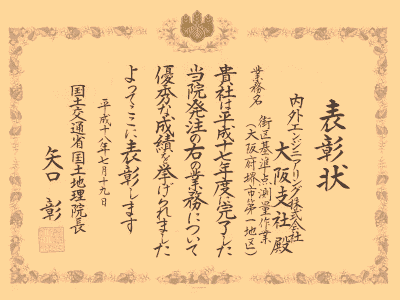 表彰状
内外エンジニアリング株式会社
大阪支社殿
業務名 街区基準点測量作業
(大阪府堺市第一地区)
貴社は平成十七年度に完了した
当院発注の右の業務について
優秀な成績を挙げられました
よってここに表彰します
平成十八年七月十九日
国土交通省国土地理院長
矢口 彰